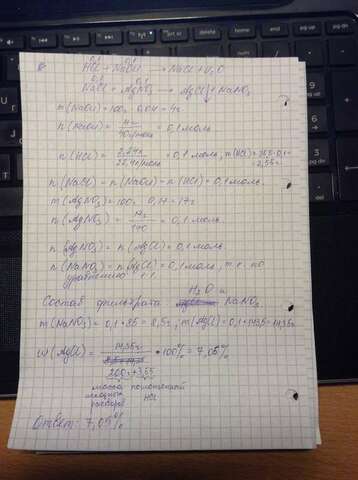 HCl + NaOH → NaCl + H₂O
0,1 0,1
NaCl + AgNO₃ → AgCl↓ + NaNO₃
m(NaOH) = 100г · 0,04 = 4г
n(NaOH) = 4г / 40г/моль = 0,1 моль
n(HCl) = 2,24л / 22,4л/моль = 0,1 моль, m(HCl) = 36,5·0,1= =3,65г
n(NaCl) = n(NaOH) = n(HCl) = 0,1 моль.
m(AgNO₃) = 100г · 0,17 = 17г
n(AgNO₃) = 17г / 170 = 0,1 моль
n(AgNO₃) = n(AgCl) = 0,1 моль
n(NaNO₃) = n(AgCl) = 0,1 моль, т.к. по
уравнению 1:1
H₂O и
Состав фильтрата NaNO₃
m(NaNO₃) = 0,1 · 85 = 8,5г; m(AgCl) = 0,1·143,5 = 14,35г
w(AgCl) = 14,35г / 200 + 3,65 · 100% = 7,05%
масса исходных растворов
поглощенный HCl
Ответ: 7,05%